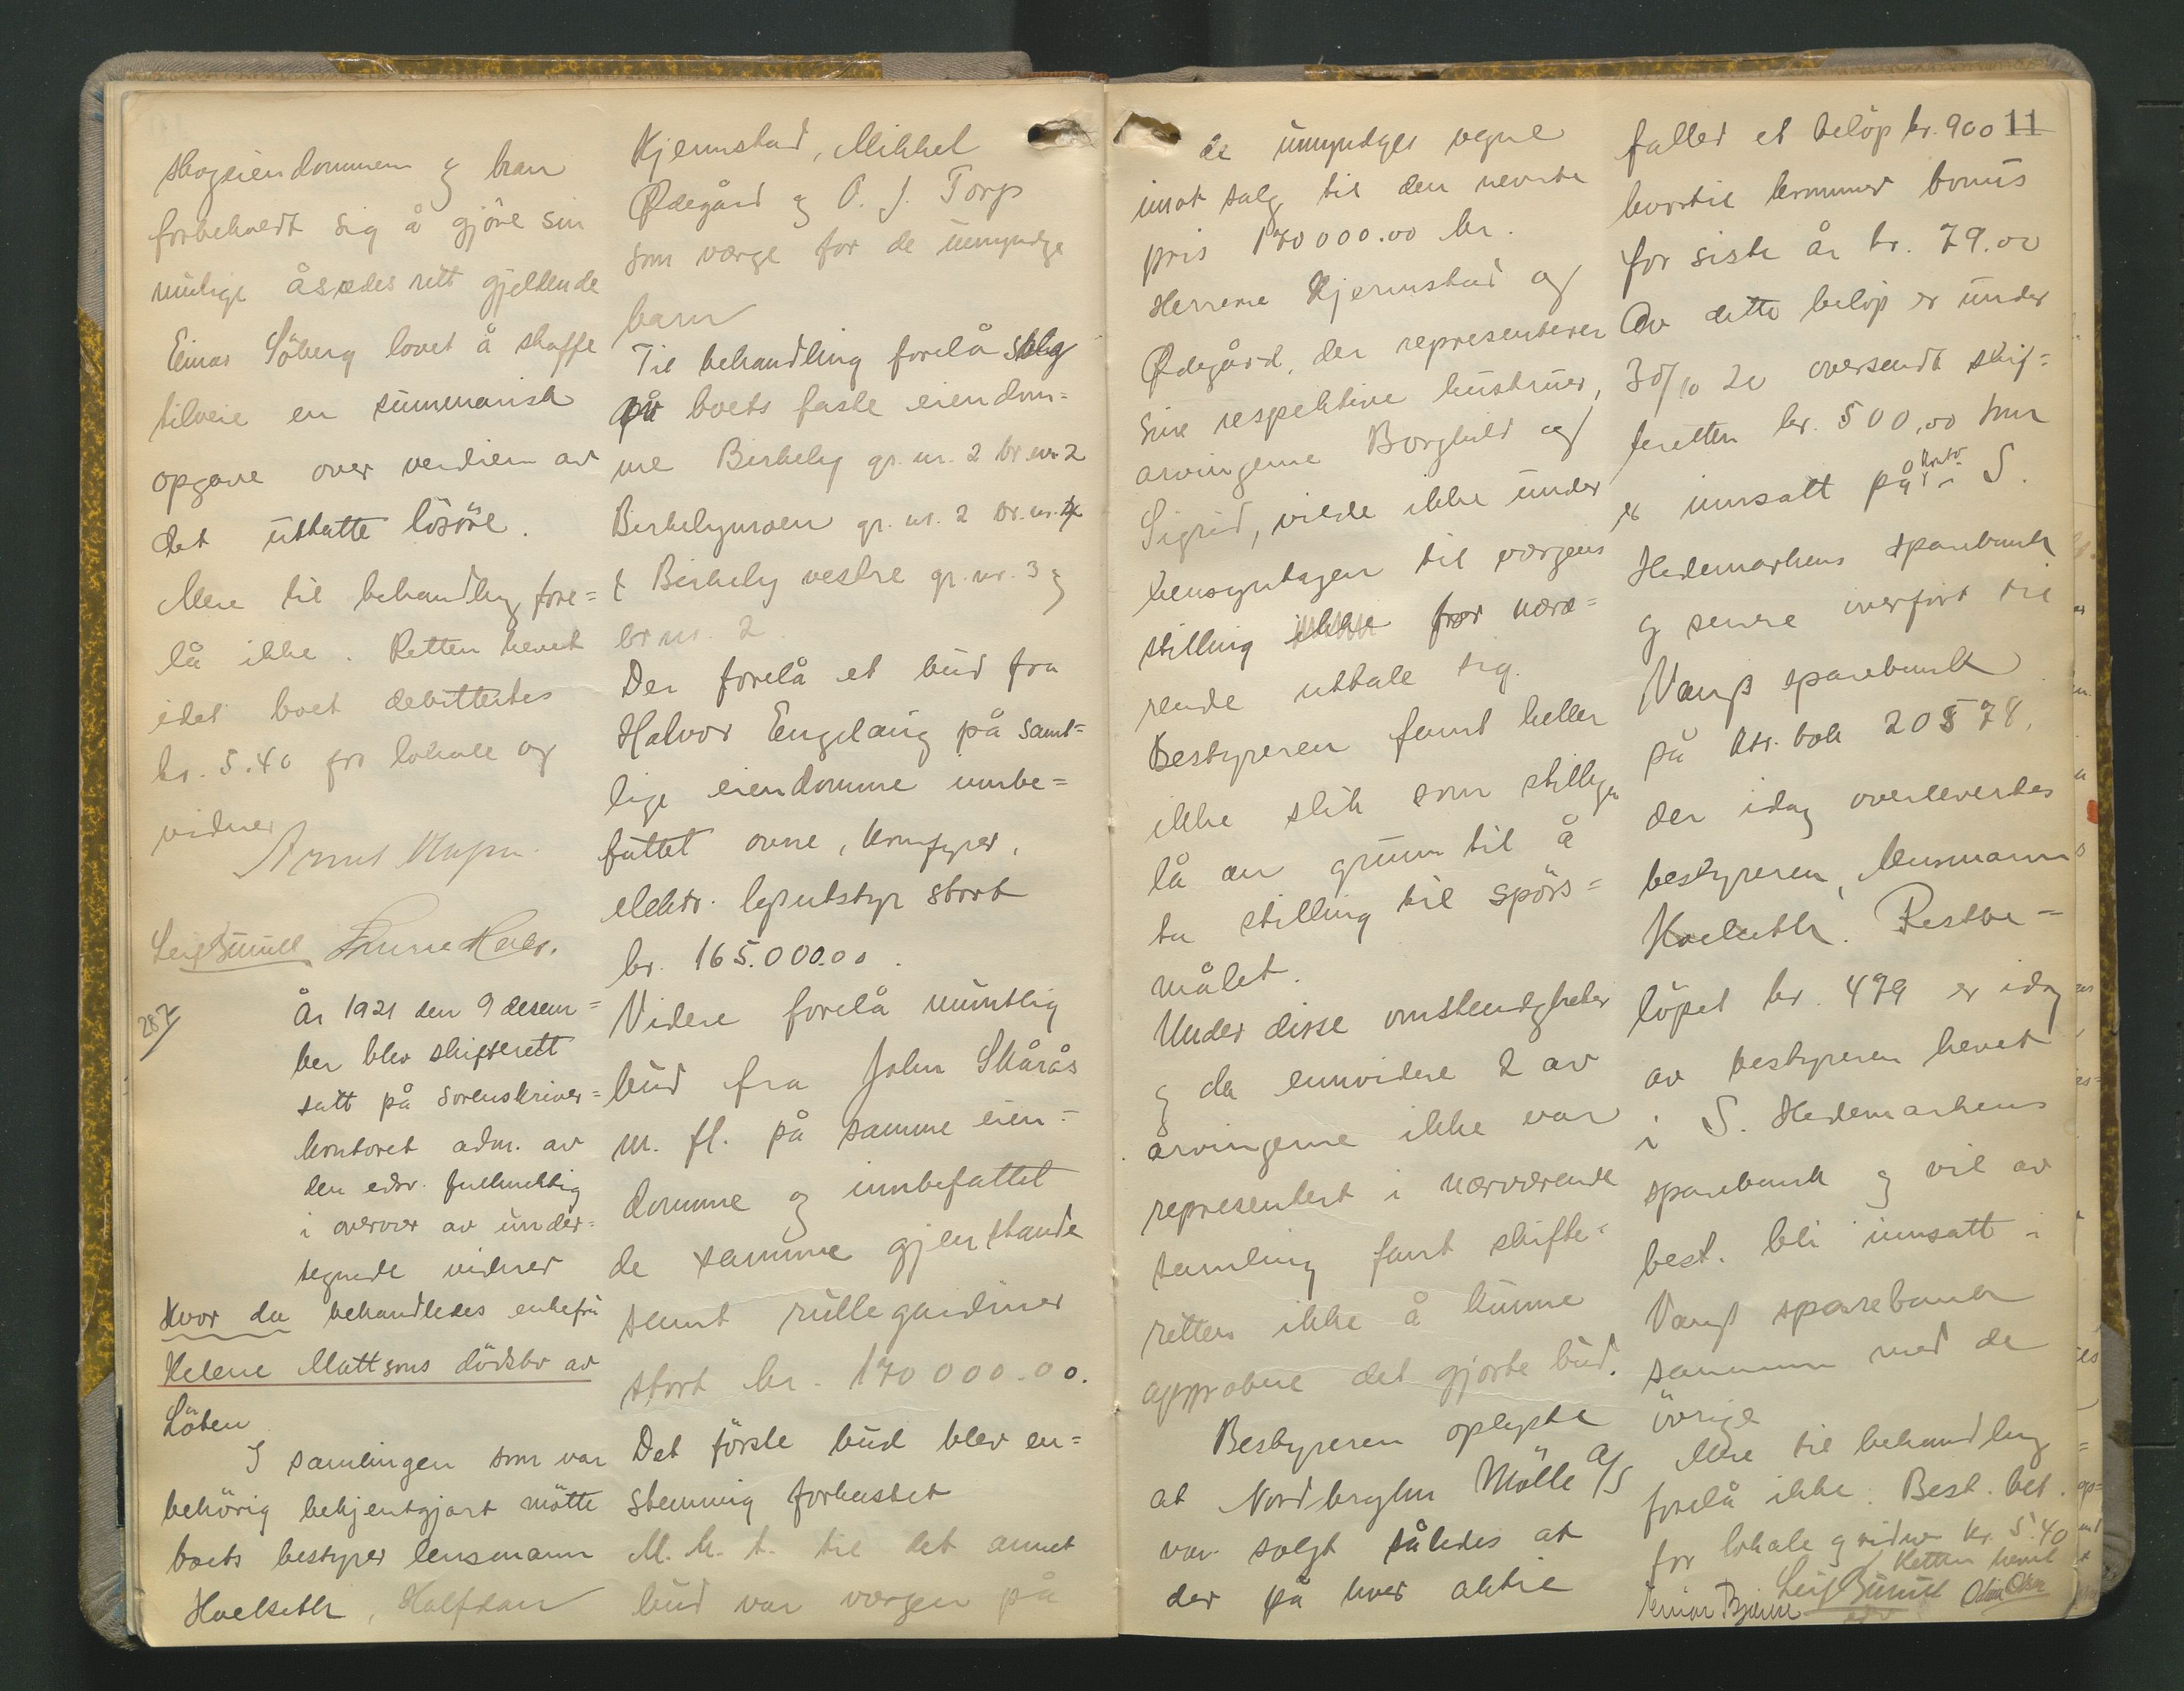 skogseiendommen og han
forbeholdt sig å gjöre sin
mulige åsædesrett gjeldende
Einar Söberg lovet å skaffe
tilveie en summarisk
opgave over verdien av
det uttatte lösöre.
Mere til behandling fore=
lå ikke. Retten hevet
idet boet debittertes
kr. 5.40 for lokale og
vidner
Leif
287
År 1921 den 9 desem=
ber blev skifterett
satt på sorenskriver=
kontoret adm. av
den edsv. fullmektig
i overvær av under=
tegnede vidner
Hvor da behandledes enkefru
Helene Mattsons dödsbo av
Löten
I samlingen som var
behörig bekjentgjort mötte
boets bestyrer lensmann
Hoelseth, Halfdan
Kjernstad, Mikkel
Ødegård og O. J. Torp
som værge for de umyndge
barn
Til behandling forelå salg
på boets faste eiendom=
me Birkely gr. nr. 2 br. nr. 2
Birkelymoen gr. nr. 2 br. nr. 4
& Birkely vestre gr. nr. 3 og
br nr. 2.
Der forelå et bud fra
Halvor Englaug på samt=
lige eiendomme innbe=
fattet ovne, komfyrer,
elektr. lysutstyr stort
kr. 165.000.00.
Videre forelå muntlig
bud fra John Skårås
m. fl. på samme eien=
domme og innbefattet
de samme gjenstande
samt rullegardiner
stort kr. 170000.00.
Det förste bud blev en=
stemmig forkastet
M. h. t. til det annet
bud var værgen på
de umyndges vegne
imot salg til den nevnte
pris 170000.00 kr.
Herrene Kjernstad og
Ødegård, der representerer
sine respektive hustruer,
arvingerne Borghild og
Sigrid, vilde ikke under
hensyntagen til værgens
stilling ikke for nære=
rende uttale sig.
Bestyreren fant heller
ikke slik som stillingen
lå an grunn til å
ta stilling til spörs=
målet.
Under disse omstendigheter
og da ennvidere 2 av
arvingerne ikke var
representert i nærværende
samling fant skifte=
retten ikke å kunne
approbere det gjorte bud.
Bestyreren oplyste
at Nordbryhn Mölle A/S
var solgt således at
der på hver aktie
11
faller et belöp kr. 900
hvortil kommer bonus
for siste år kr. 79.00
Av dette belöp er under
30/10 20 oversendt skif=
teretten kr. 500,00 som
er innsatt på konto i S.
Hedemarkens sparebank
og senere overfört til
Vangs sparebank
på ktr. bok 20578,
der idag overlevertes
bestyreren, lensmann
Hoelseth. Restbe=
löpet kr. 479 er idag
av bestyreren hevet
i S. Hedemarkens
sparebank og vil av
best. bli innsatt i
Vangs sparebank
sammen med de
övrige
Mere til behandling
forelå ikke. Best. bet.
for lokale og vidner kr. 5.40
Retten hevet
Leif
Einar Bjerke